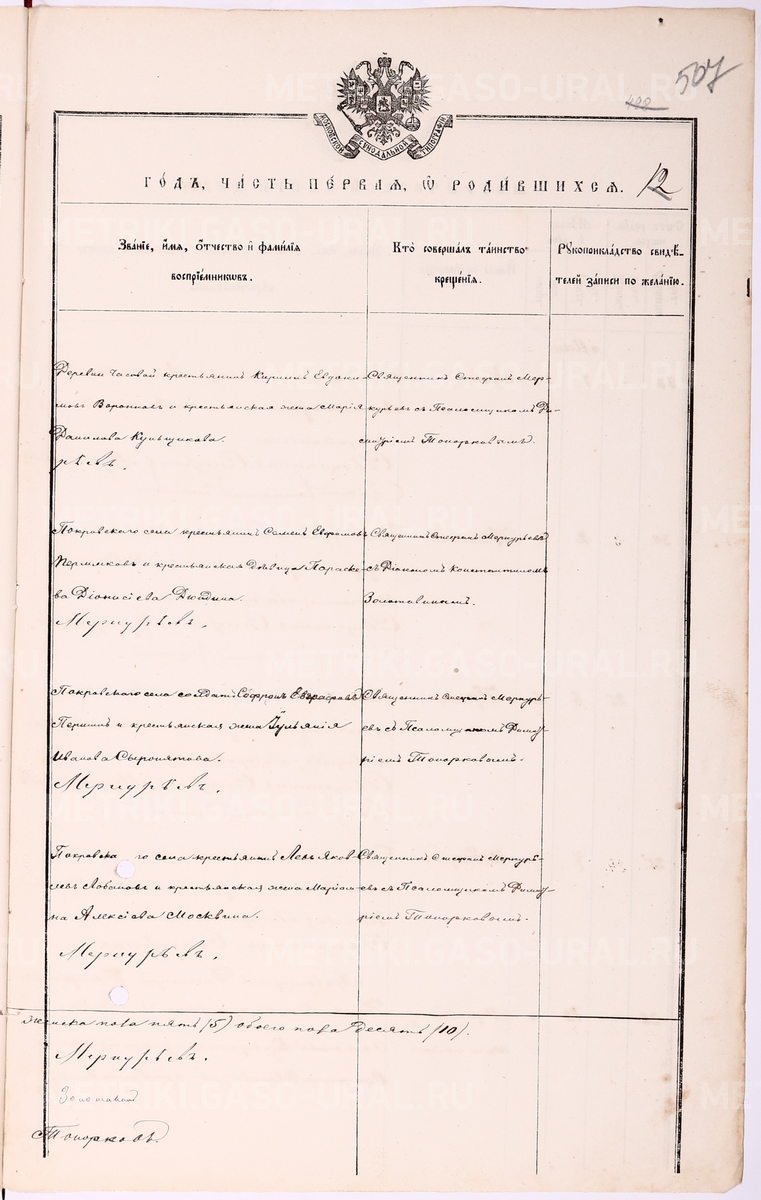 507
488
МОСКОВСКОЙ СѴНОДАЛЬНОЙ ТИПОГРАФІИ
ГОДЪ, ЧАСТЬ ПЕРВАЯ, Ѡ РОДИВШИХСЯ. 12
Званіе, имя, отчество и фамилія
воспріемниковъ.
Кто совершалъ таинство
крещенія.
Рукоприкладство свидѣ-
телей записи по желанію.
Деревни Часовой крестьянинъ Кириллъ Евдоки-
мовъ Воронковъ и крестьянская жена Марія
Данилова Кульщикова.
Священникъ Стефанъ Мер-
курьевъ съ Псаломщикомъ Ди-
митріемъ Топорковымъ.
Покровскаго села крестьянинъ Семенъ Евфимовъ
Пермяковъ и крестьянская дѣвица Параске-
ва Діонисіева Дюдина.
Меркурьевъ.
Священникъ Стефанъ Меркурьевъ
съ Діакономъ Константиномъ
Золотавинымъ.
Покровскаго села солдатъ Софронъ Евграфовъ
Першинъ и крестьянская жена Іульянія
Иванова Сыромятова.
Меркурьевъ.
Священникъ Стефанъ Меркурь-
евъ съ Псаломщикомъ Димит-
ріемъ Топорковымъ.
Покровскаго села крестьянинъ Левъ Яков-
левъ Лобановъ и крестьянская жена Маріам-
на Алексіева Москвина.
Меркурьевъ.
Священникъ Стефанъ Меркурь-
евъ съ Псаломщикомъ Димит-
ріемъ Топорковымъ.
женска пола пять (5) обоего пола десять (10).
Меркурьевъ.
Топорковъ
METRIKI.GASO-URAL.RU